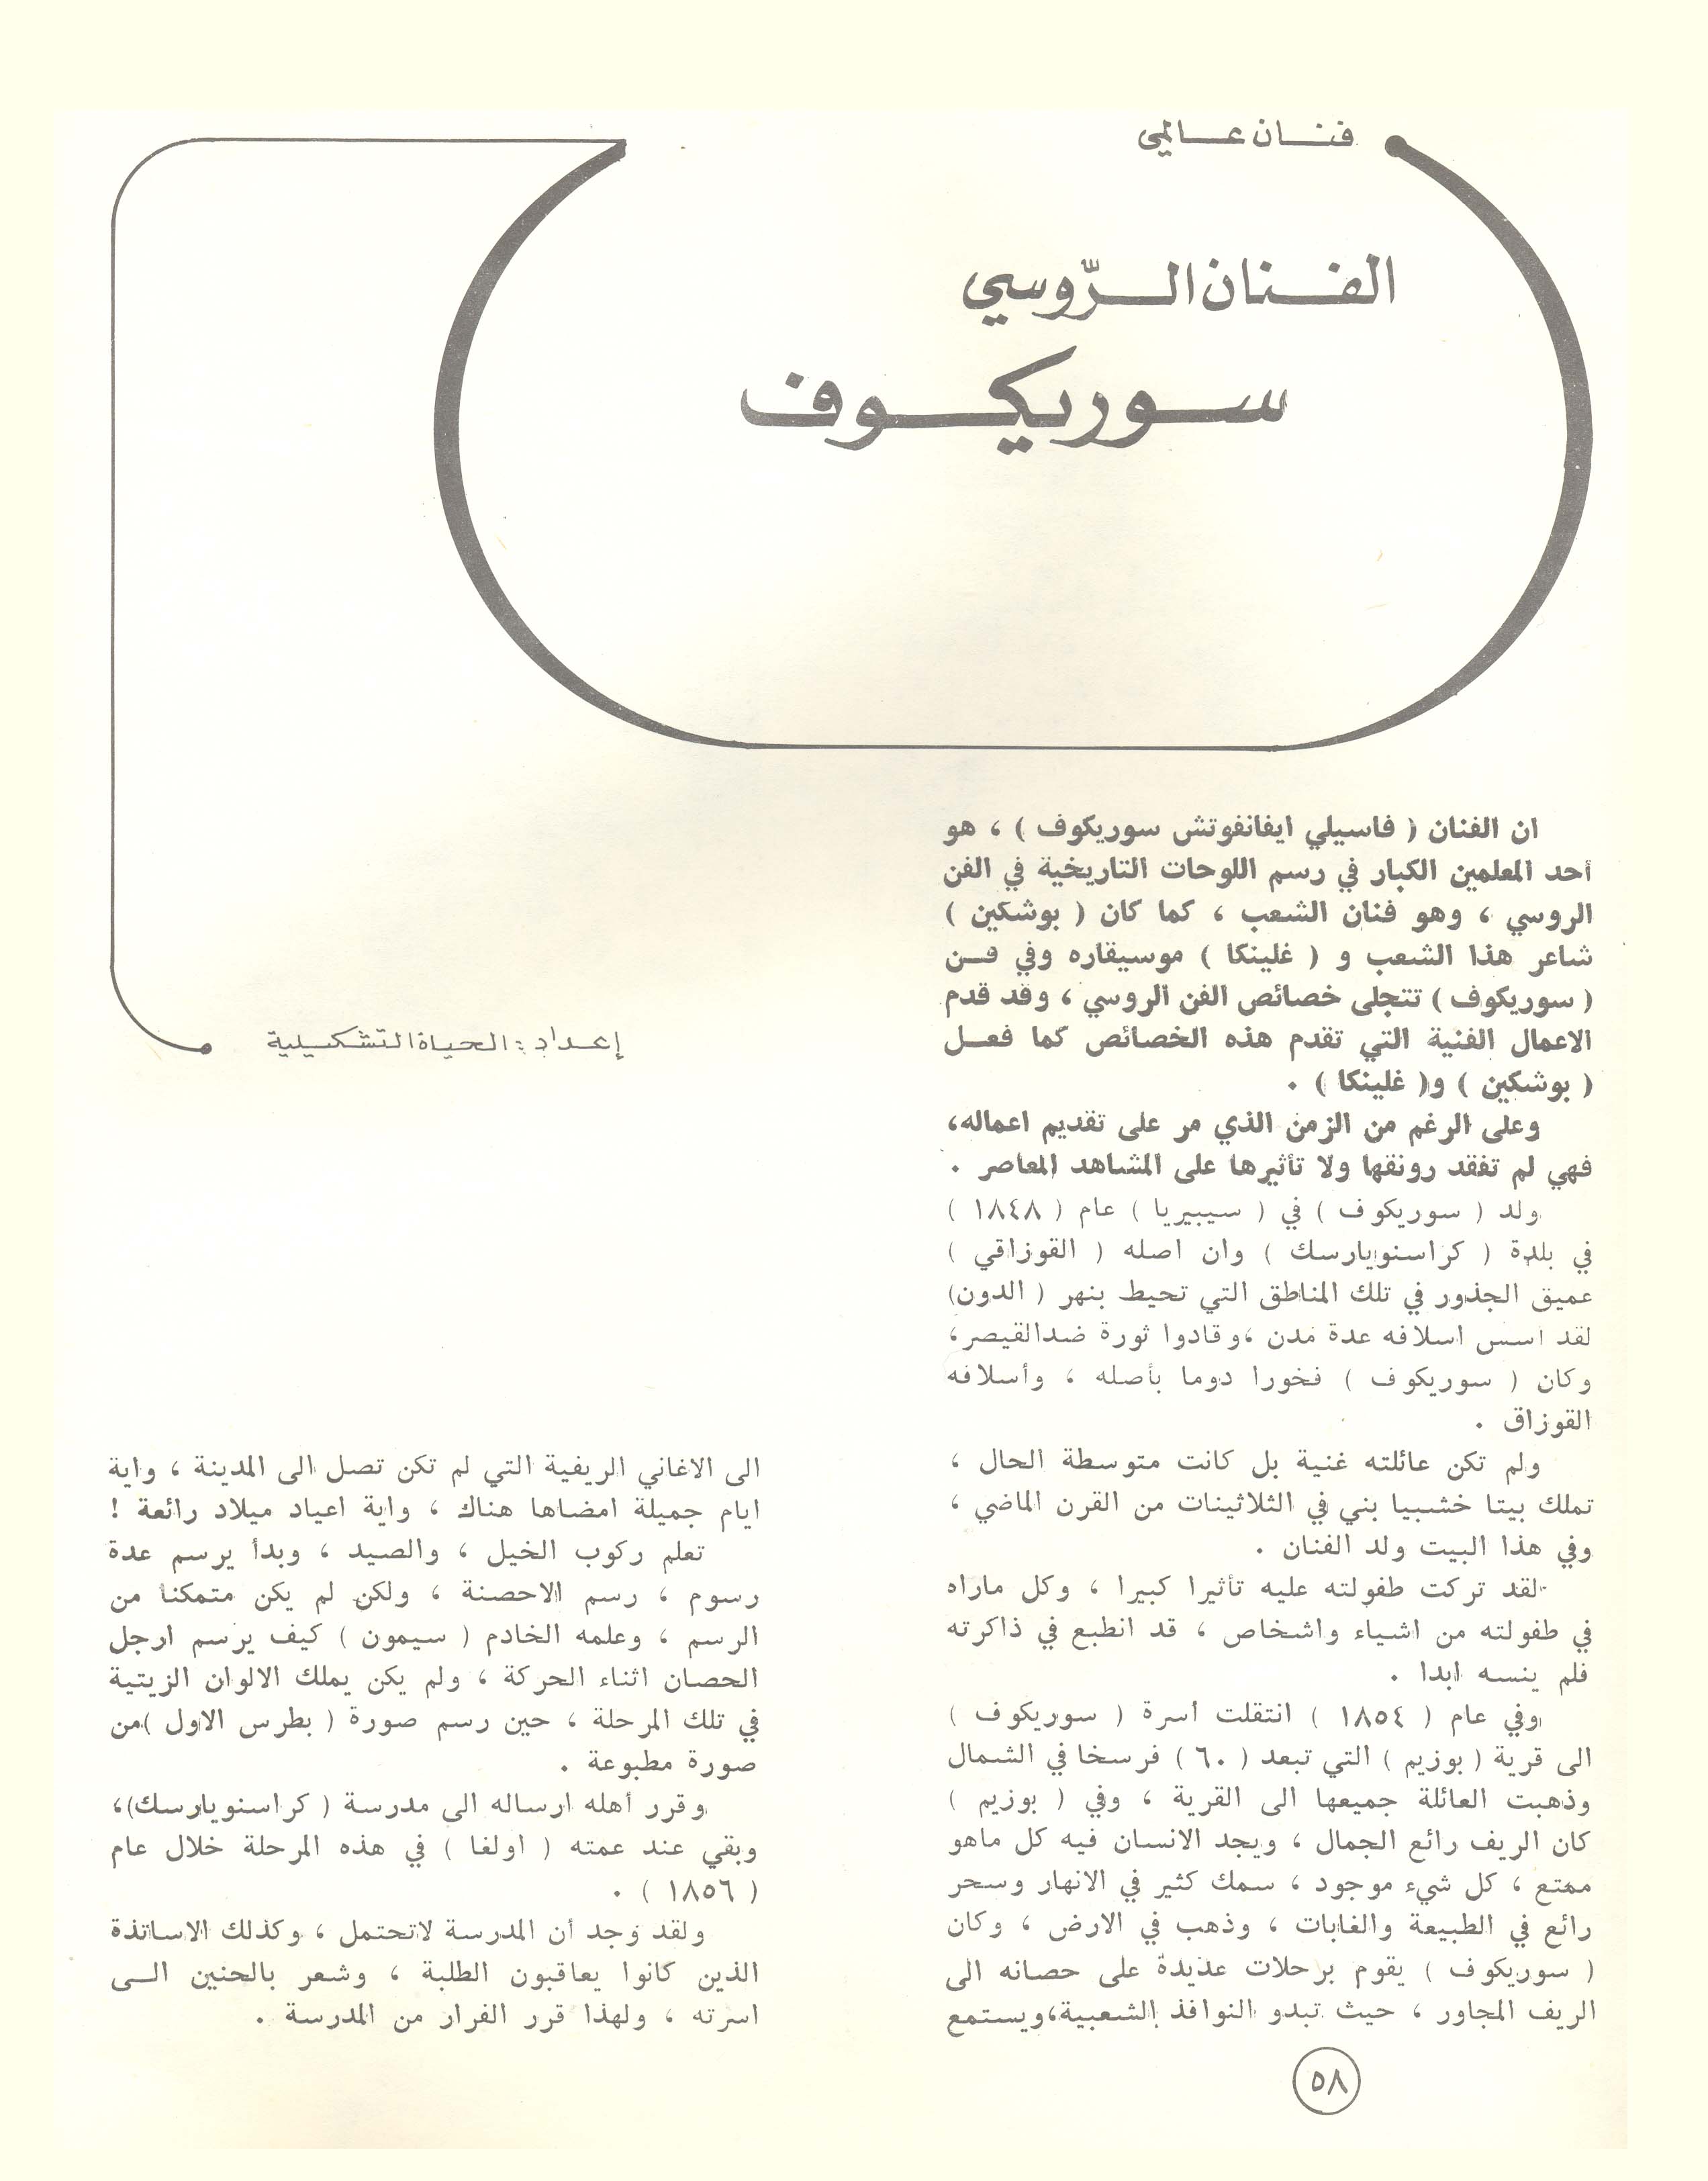 فنان عالمي
الفنان الرّوسي
سوريكوف
إعداد : الحياة التشكيلية
ان الفنان ( فاسيلي ايفانفوتش سوريكوف ) ، هو
أحد المعلمين الكبار في رسم اللوحات التاريخية في الفن
الروسي ، وهو فنان الشعب ، كما كان ( بوشكين )
شاعر هذا الشعب و ( غلينكا ) موسيقاره وفي فن
( سوريكوف ) تتجلى خصائص الفن الروسي ، وقد قدم
الاعمال الفنية التي تقدم هذه الخصائص كما فعل
( بوشكين ) و( غلينكا ) .
وعلى الرغم من الزمن الذي مر على تقديم اعماله،
فهي لم تفقد رونقها ولا تأثيرها على المشاهد المعاصر .
ولد ( سوريكوف ) في ( سيبيريا ) عام ( ١٨٤٨ )
في بلدة ( كراسنويارسك ) وان اصله ( القوزاقي )
عميق الجذور في تلك المناطق التي تحيط بنهر ( الدون)
لقد اسس اسلافه عدة مدن ،وقادوا ثورة ضدالقيصر،
وكان ( سوريكوف ) فخورا دوما بأصله ، وأسلافه
القوزاق .
ولم تكن عائلته غنية بل كانت متوسطة الحال ،
تملك بيتا خشبيا بني في الثلاثينات من القرن الماضي ،
وفي هذا البيت ولد الفنان .
لقد تركت طفولته عليه تأثيرا كبيرا ، وكل ماراه
في طفولته من اشياء واشخاص ، قد انطبع في ذاكرته
فلم ينسه ابدا .
وفي عام ( ١٨٥٤ ) انتقلت أسرة ( سوريكوف )
الى قرية ( بوزيم ) التي تبعد ( ٦٠ ) فرسخا في الشمال
وذهبت العائلة جميعها الى القرية ، وفي ( بوزيم )
كان الريف رائع الجمال ، ويجد الانسان فيه كل ماهو
ممتع ، كل شيء موجود ، سمك كثير في الانهار وسحر
رائع في الطبيعة والغابات ، وذهب في الارض ، وكان
( سوريكوف ) يقوم برحلات عديدة على حصانه الى
الريف المجاور ، حيث تبدو النوافذ الشعبية،ويستمع
الى الاغاني الريفية التي لم تكن تصل الى المدينة ، واية
ايام جميلة امضاها هناك ، واية اعياد ميلاد رائعة !
تعلم ركوب الخيل ، والصيد ، وبدأ يرسم عدة
رسوم ، رسم الاحصنة ، ولكن لم يكن متمكنا من
الرسم ، وعلمه الخادم ( سيمون ) كيف يرسم ارجل
الحصان اثناء الحركة ، ولم يكن يملك الالوان الزيتية
في تلك المرحلة ، حين رسم صورة ( بطرس الاول )من
صورة مطبوعة .
وقرر أهله ارساله الى مدرسة ( كراسنويارسك)،
وبقي عند عمته ( اولغا ) في هذه المرحلة خلال عام
( ١٨٥٦ ) .
ولقد وجد أن المدرسة لاتحتمل ، وكذلك الاساتذة
الذين كانوا يعاقبون الطلبة ، وشعر بالحنين الى
اسرته ، ولهذا قرر الفرار من المدرسة .
٥٨